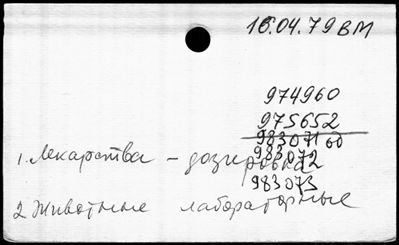 16.04.79 ВМ
974960
975652
983071 60
1. Лекарства – дозировка
983072
983073
2 Животные лабораторные